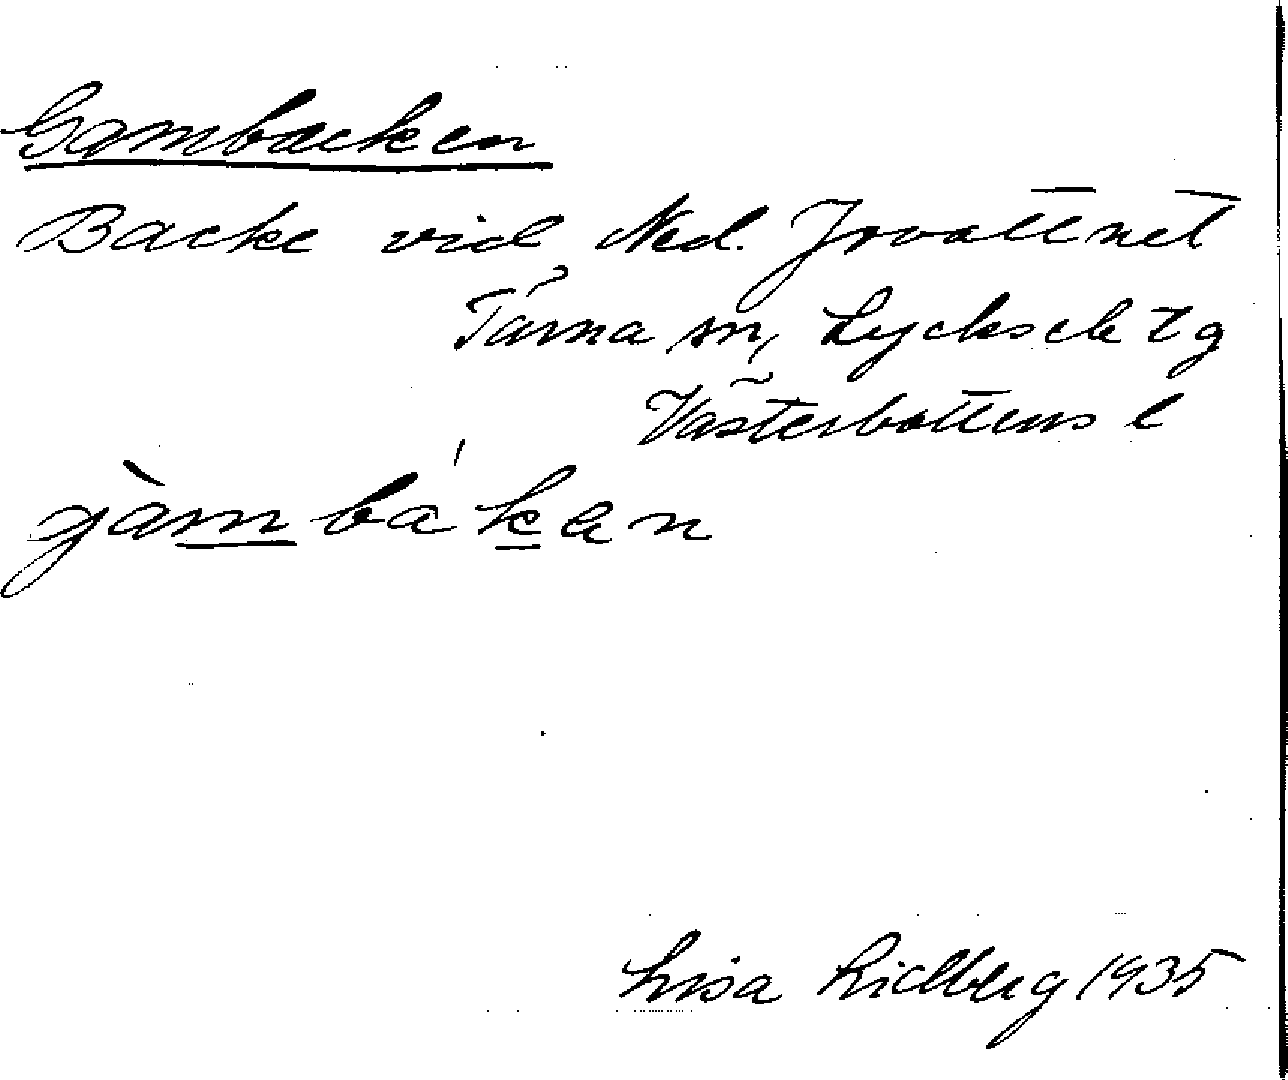 Gambacken
Backe vid Ned. Jovattnet
Tärna sn, Lycksele tg
Västerbottens l
gàm bá kan
Lisa Lidberg 1935